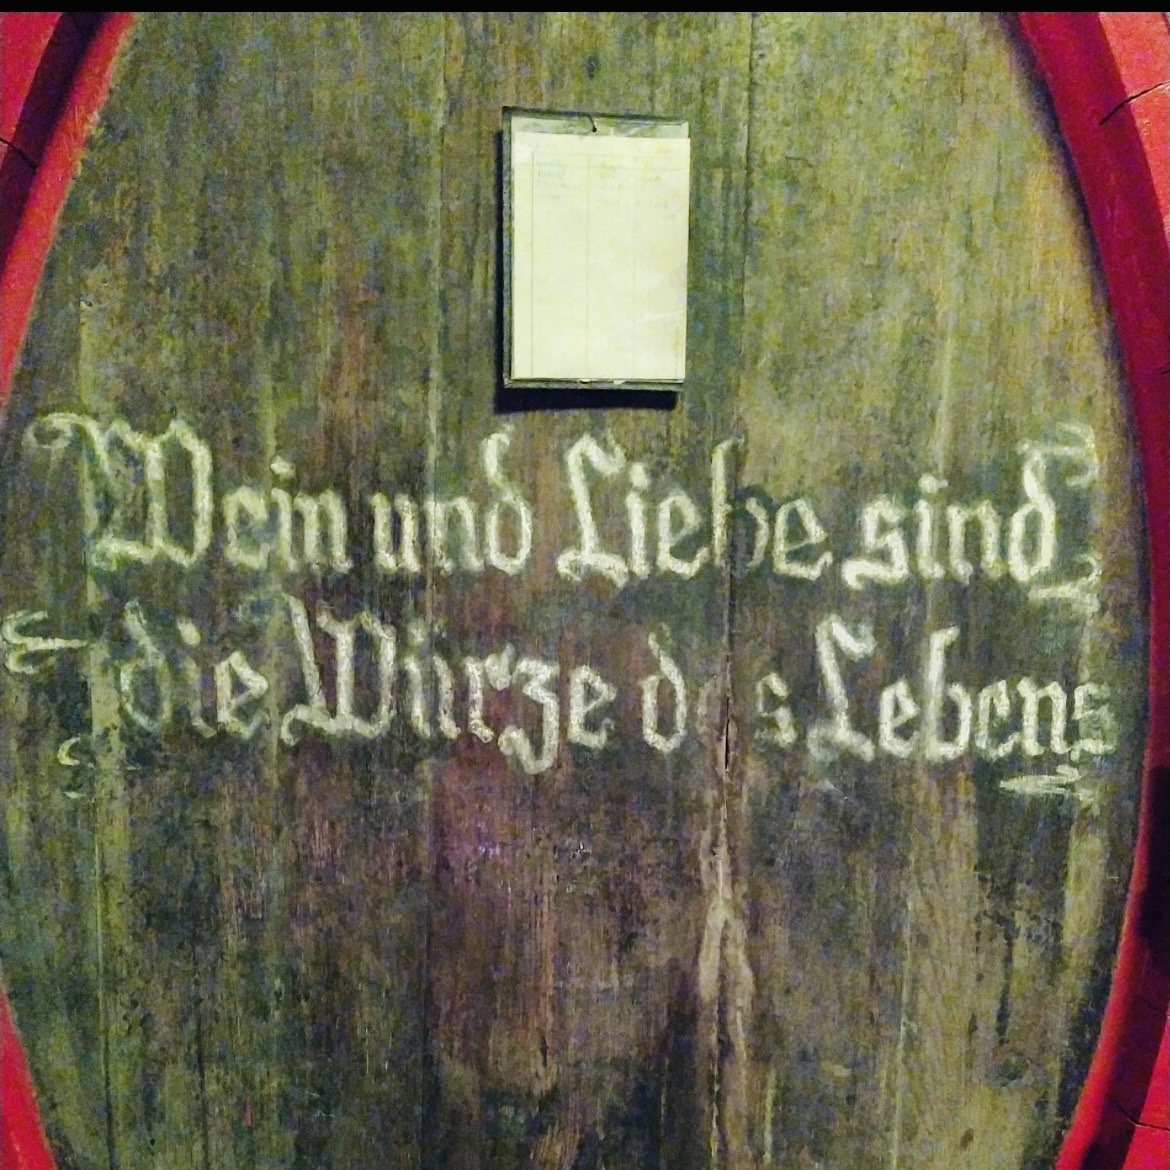 Wein und Liebe sind
die Würze des Lebens